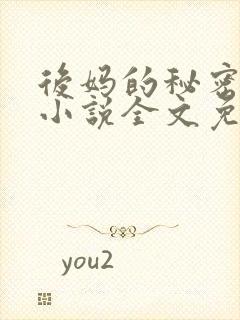 後妈的秘密
小説全文免
you2